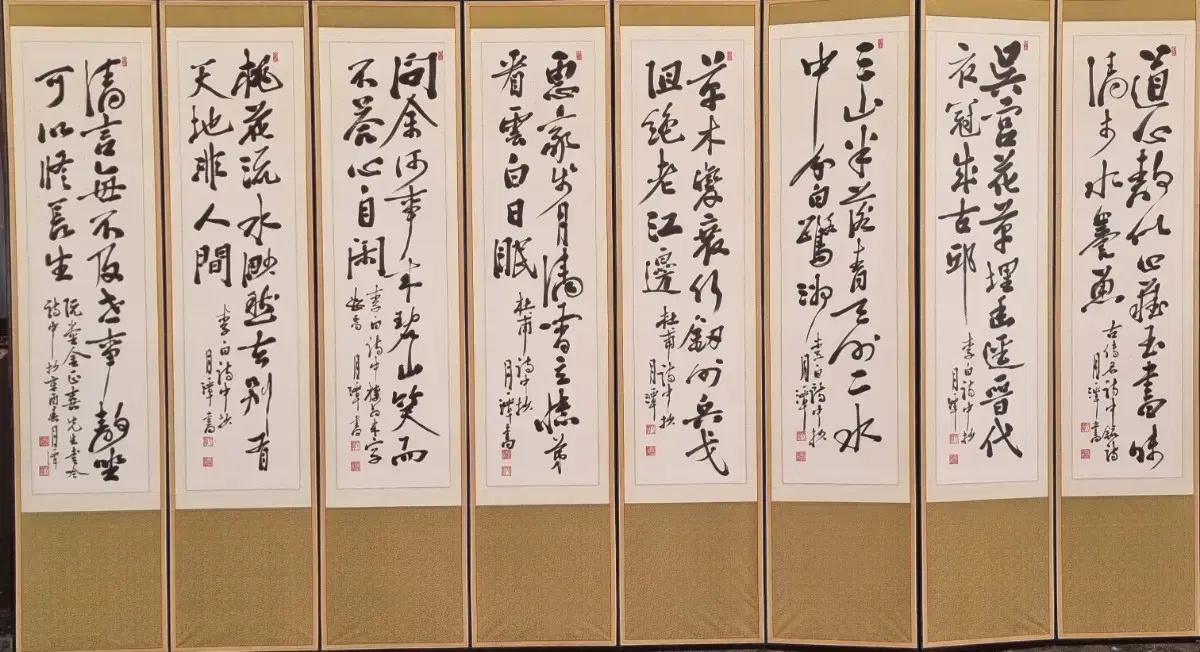 道心靜似山藏玉書味
清於水養魚
古儒名詩中錄詩
月潭書
吳宮花草埋幽逕晉代
衣冠成古邱
李白詩中抄
月潭
三山半落青天外二水
中分白鷺洲
李白詩中抄
月潭
草木變衰行劍外兵戈
阻絶老江邊
杜甫詩中抄
月潭
思家步月清宵立憶弟
看雲白日眠
杜甫詩中抄
月潭書
問余何事碧山笑而
不答心自閑
李白詩中字
月潭書
桃花流水渺然去別有
天地非人間
李白詩中抄
月潭書
清言無不及世事靜坐
可以修長生
阮堂金正喜先生
詩中抄辛酉春月潭